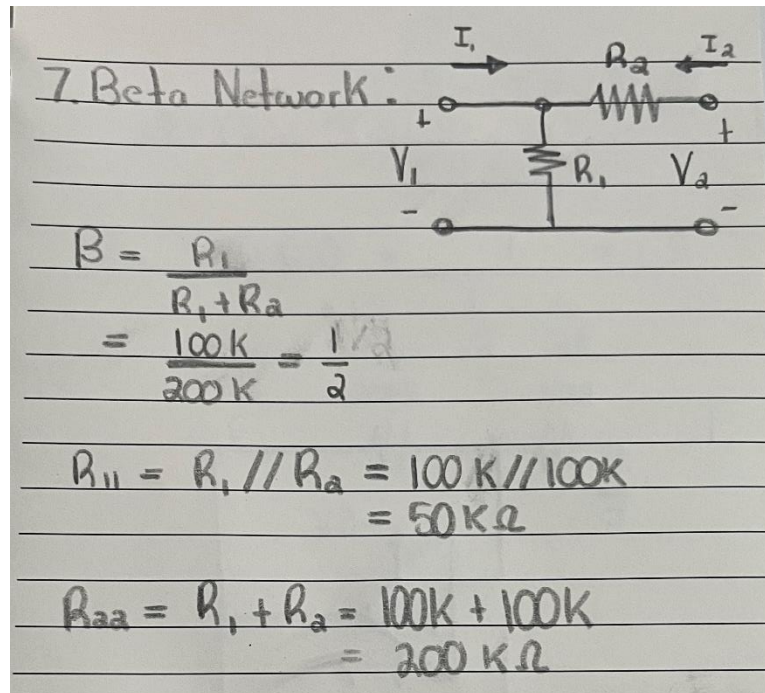 I₁
R₂
I₂
7. Beta Network:
+
+
V₁
R₁
V₂
-
-
β = R₁ / R₁ + R₂
= 100K / 200K = 1 / 2
R₁₁ = R₁ // R₂ = 100K // 100K
= 50KΩ
R₂₂ = R₁ + R₂ = 100K + 100K
= 200 KΩ